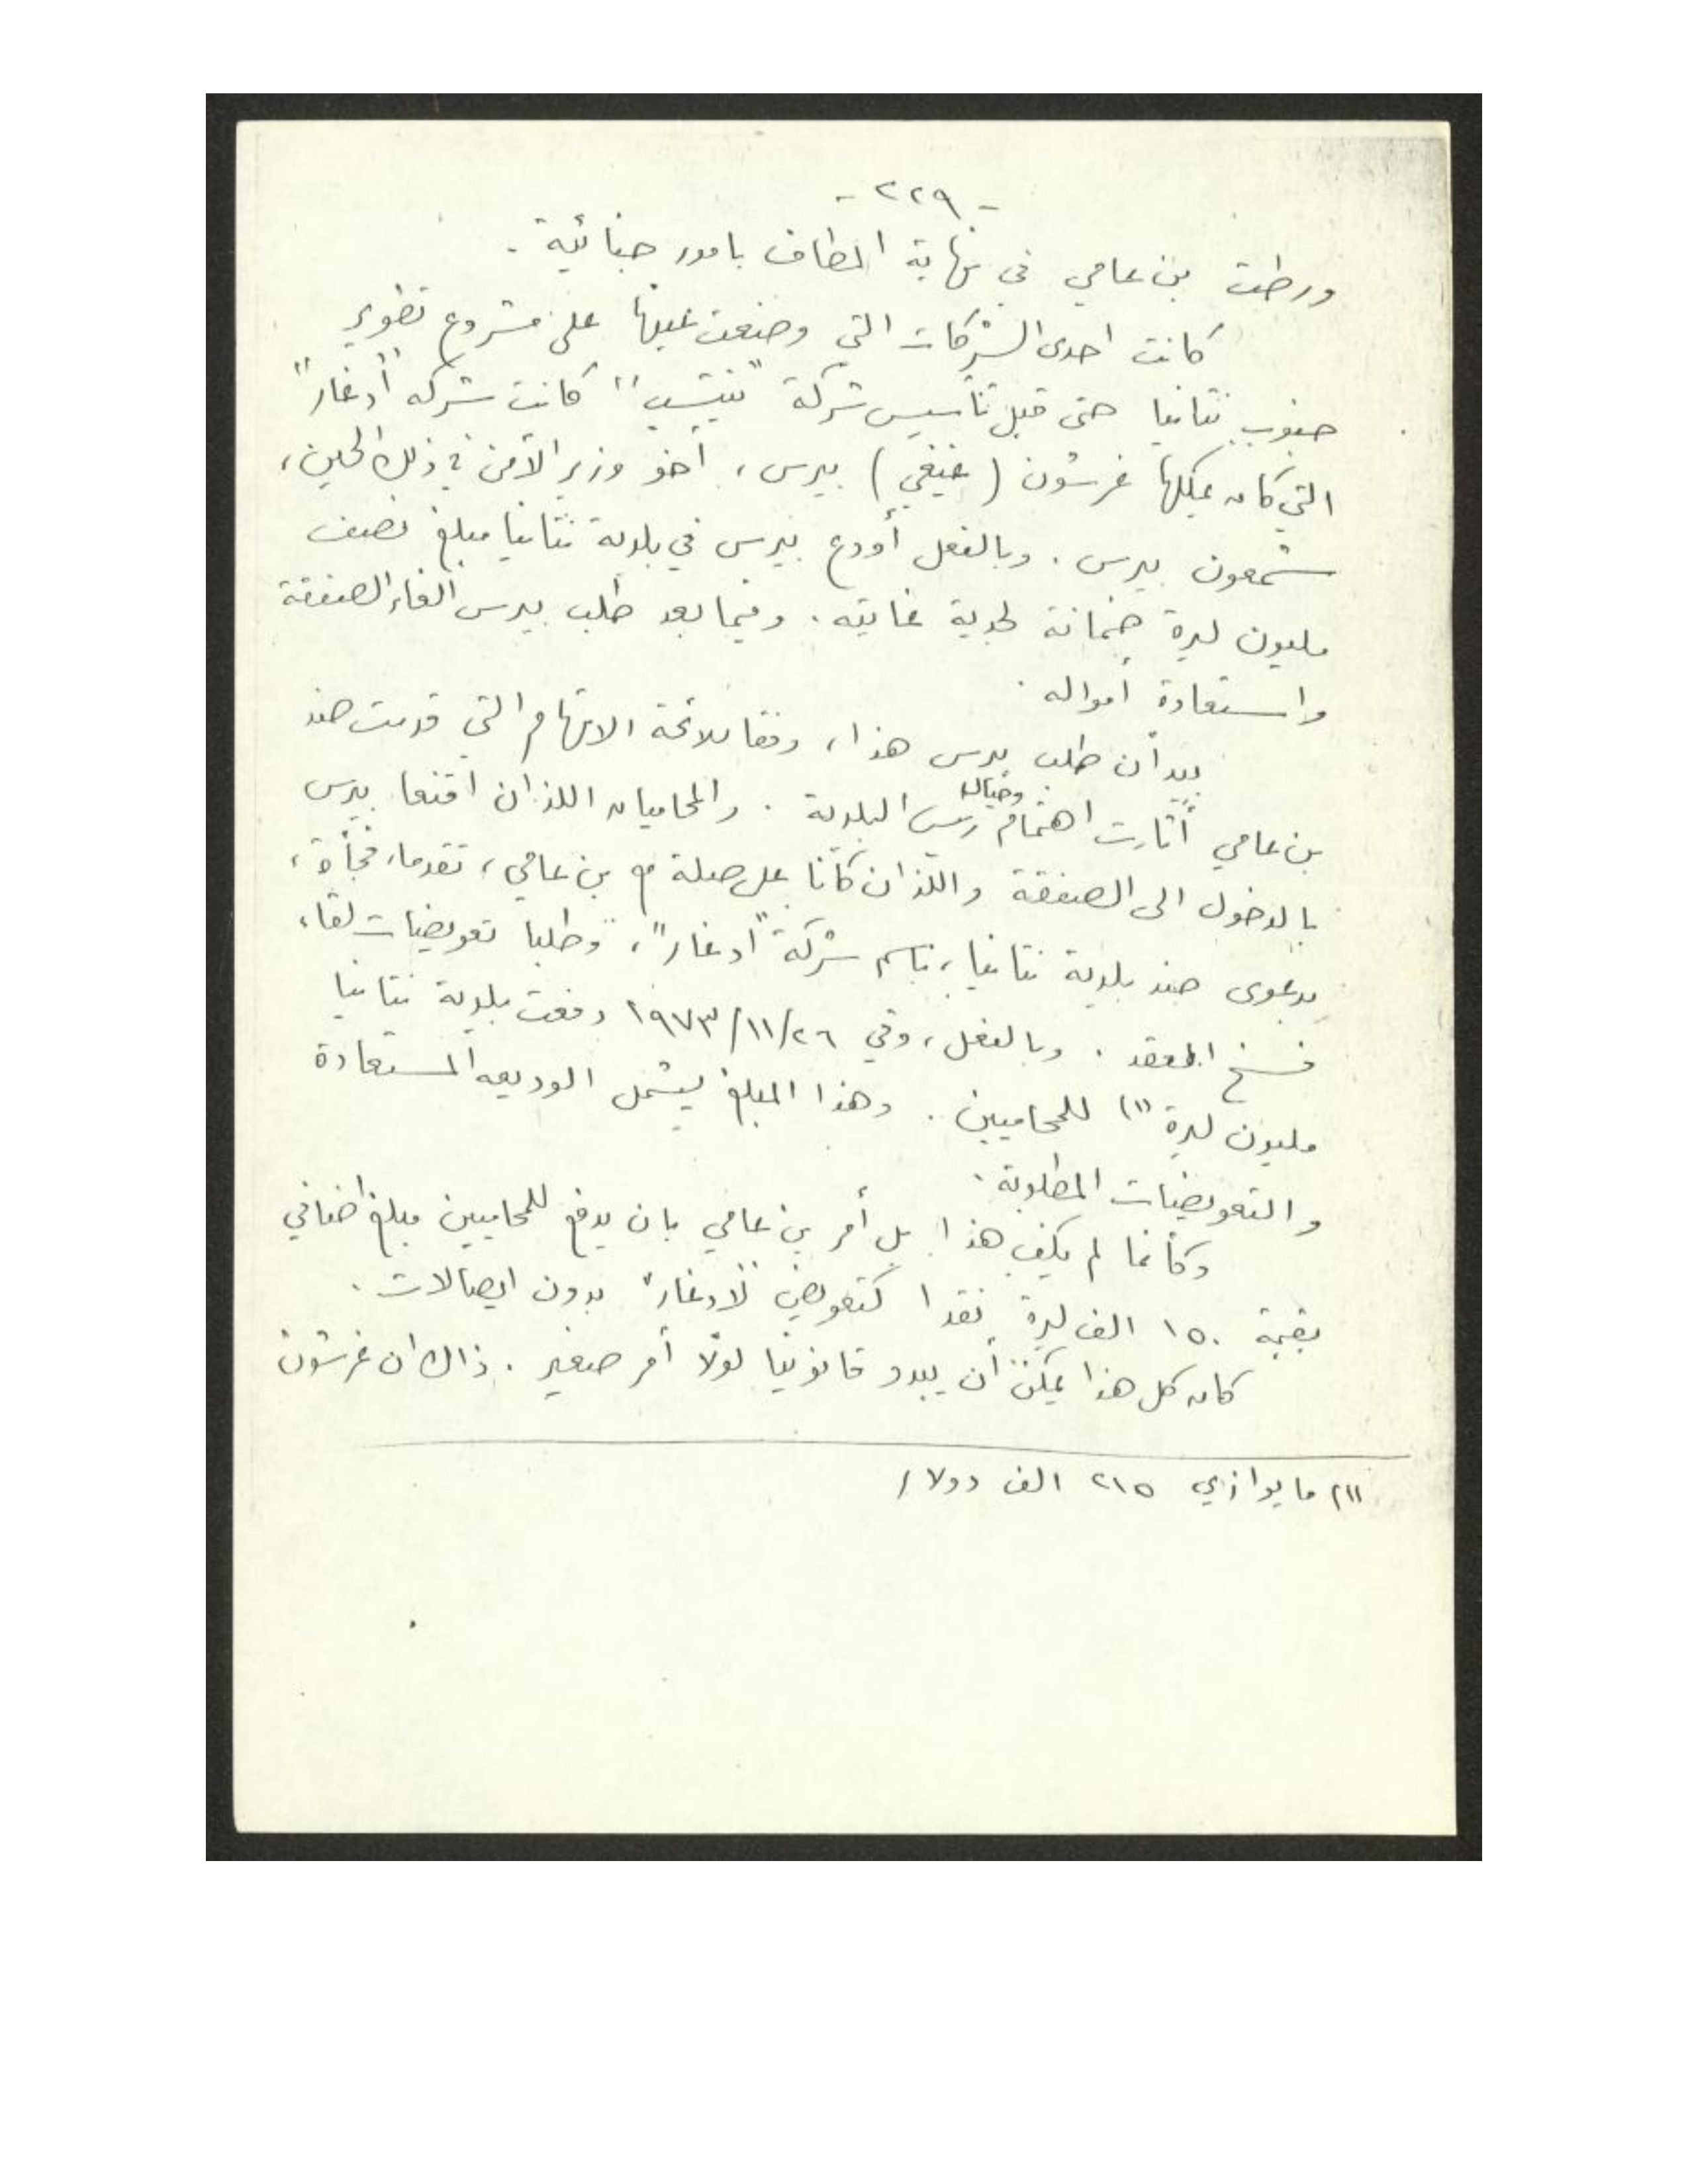 - ٢٢٩ -
ورطت بن عامي في نهاية المطاف بامور جنائية .
كانت احدى الشركات التي وضعت عينها على مشروع تطوير
جنوب نتانيا حتى قبل تأسيس شركة " كانت شركه "أدغار"
التي كان يملكها غرشون ( غيغي ) بيرس ، أخو وزير الأمن في ذلك الحين ،
شمعون بيرس . وبالفعل أودع بيرس في بلدية نتانيا مبلغ نصف
مليون ليرة ضمانة لجدية غايته . وفيما بعد طلب بيرس الغاء الصفقة
واستعادة أمواله .
بيد أن طلب بيرس هذا ، وفقا للائحة الاتهام التي قدمت ضد
بن عامي أثارت اهتمام وخيال رئيس البلدية . والمحاميان اللذان اقنعا بيرس
بالدخول الى الصفقة واللذان كانا على صلة مع بن عامي ، تقدما، فجأة ،
بدعوى ضد بلدية نتانيا ، باسم شركة "أدغار" ، وطلبا تعويضات لقاء
فسخ العقد . وبالفعل ، وفي ٢٦/١١/١٩٧٣ دفعت بلدية نتانيا
مليون ليرة (١) للمحاميين . وهذا المبلغ يشمل الوديعه المستعادة
والتعويضات المطلوبة .
وكأنما لم يكف هذا بل أمر بن عامي بان يدفع للمحاميين مبلغ اضافي
بقيمة ١٥٠ الف ليرة نقدا كتعويض "لادغار" بدون ايصالات .
كان كل هذا يمكن أن يبدو قانونيا لولا أمر صغير . ذاك ان غرشون
(١) ما يوازي ٢١٥ الف دولار